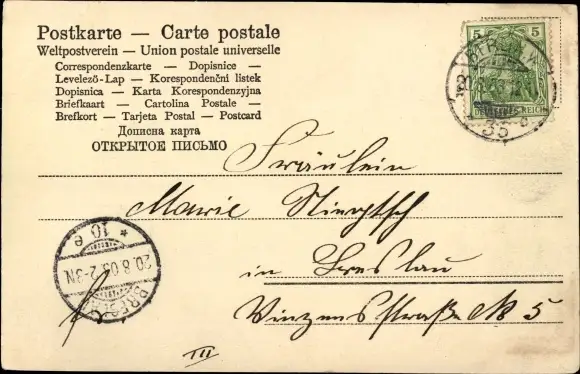 Postkarte — Carte postale
Weltpostverein — Union postale universelle
Correspondenzkarte — Dopisnice —
Levelező-Lap — Korespondenční listek
Dopisnica — Karta Korespondencyjna
Briefkaart — Cartolina Postale —
Brefkort — Tarjeta Postal — Postcard
Дописна карта
ОТКРЫТОЕ ПИСЬМО
5 5
DEUTSCHES REICH
35
Fräulein
Marie
in Breslau
Vinzensstraße № 5
* 10 e
20.8.05.2-3N.
BRESLAU
III